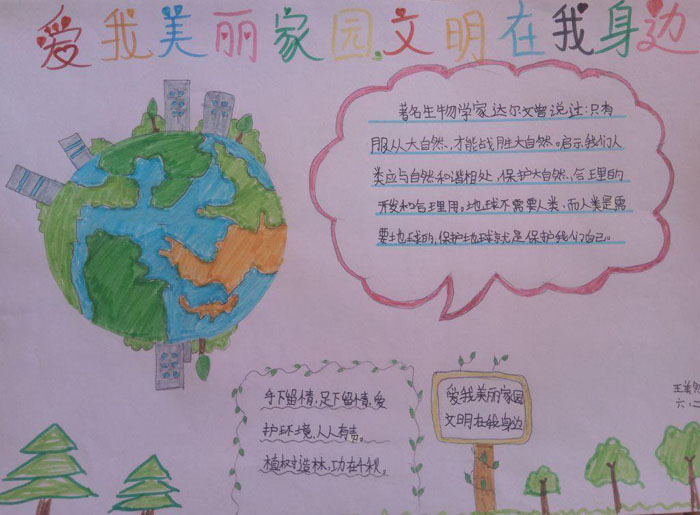 爱我美丽家园,文明在我身边
著名生物学家达尔文曾说过:只有
服从大自然,才能战胜大自然。启示我们人
类应与自然和谐相处,保护大自然,合理的
开发和合理用。地球不需要人类,而人类是需
要地球的,保护地球就是保护我们自己。
手下留情,足下留情,爱
护环境,人人有责。
植树造林,功在千秋。
爱我美丽家园
文明在我身边
六.二